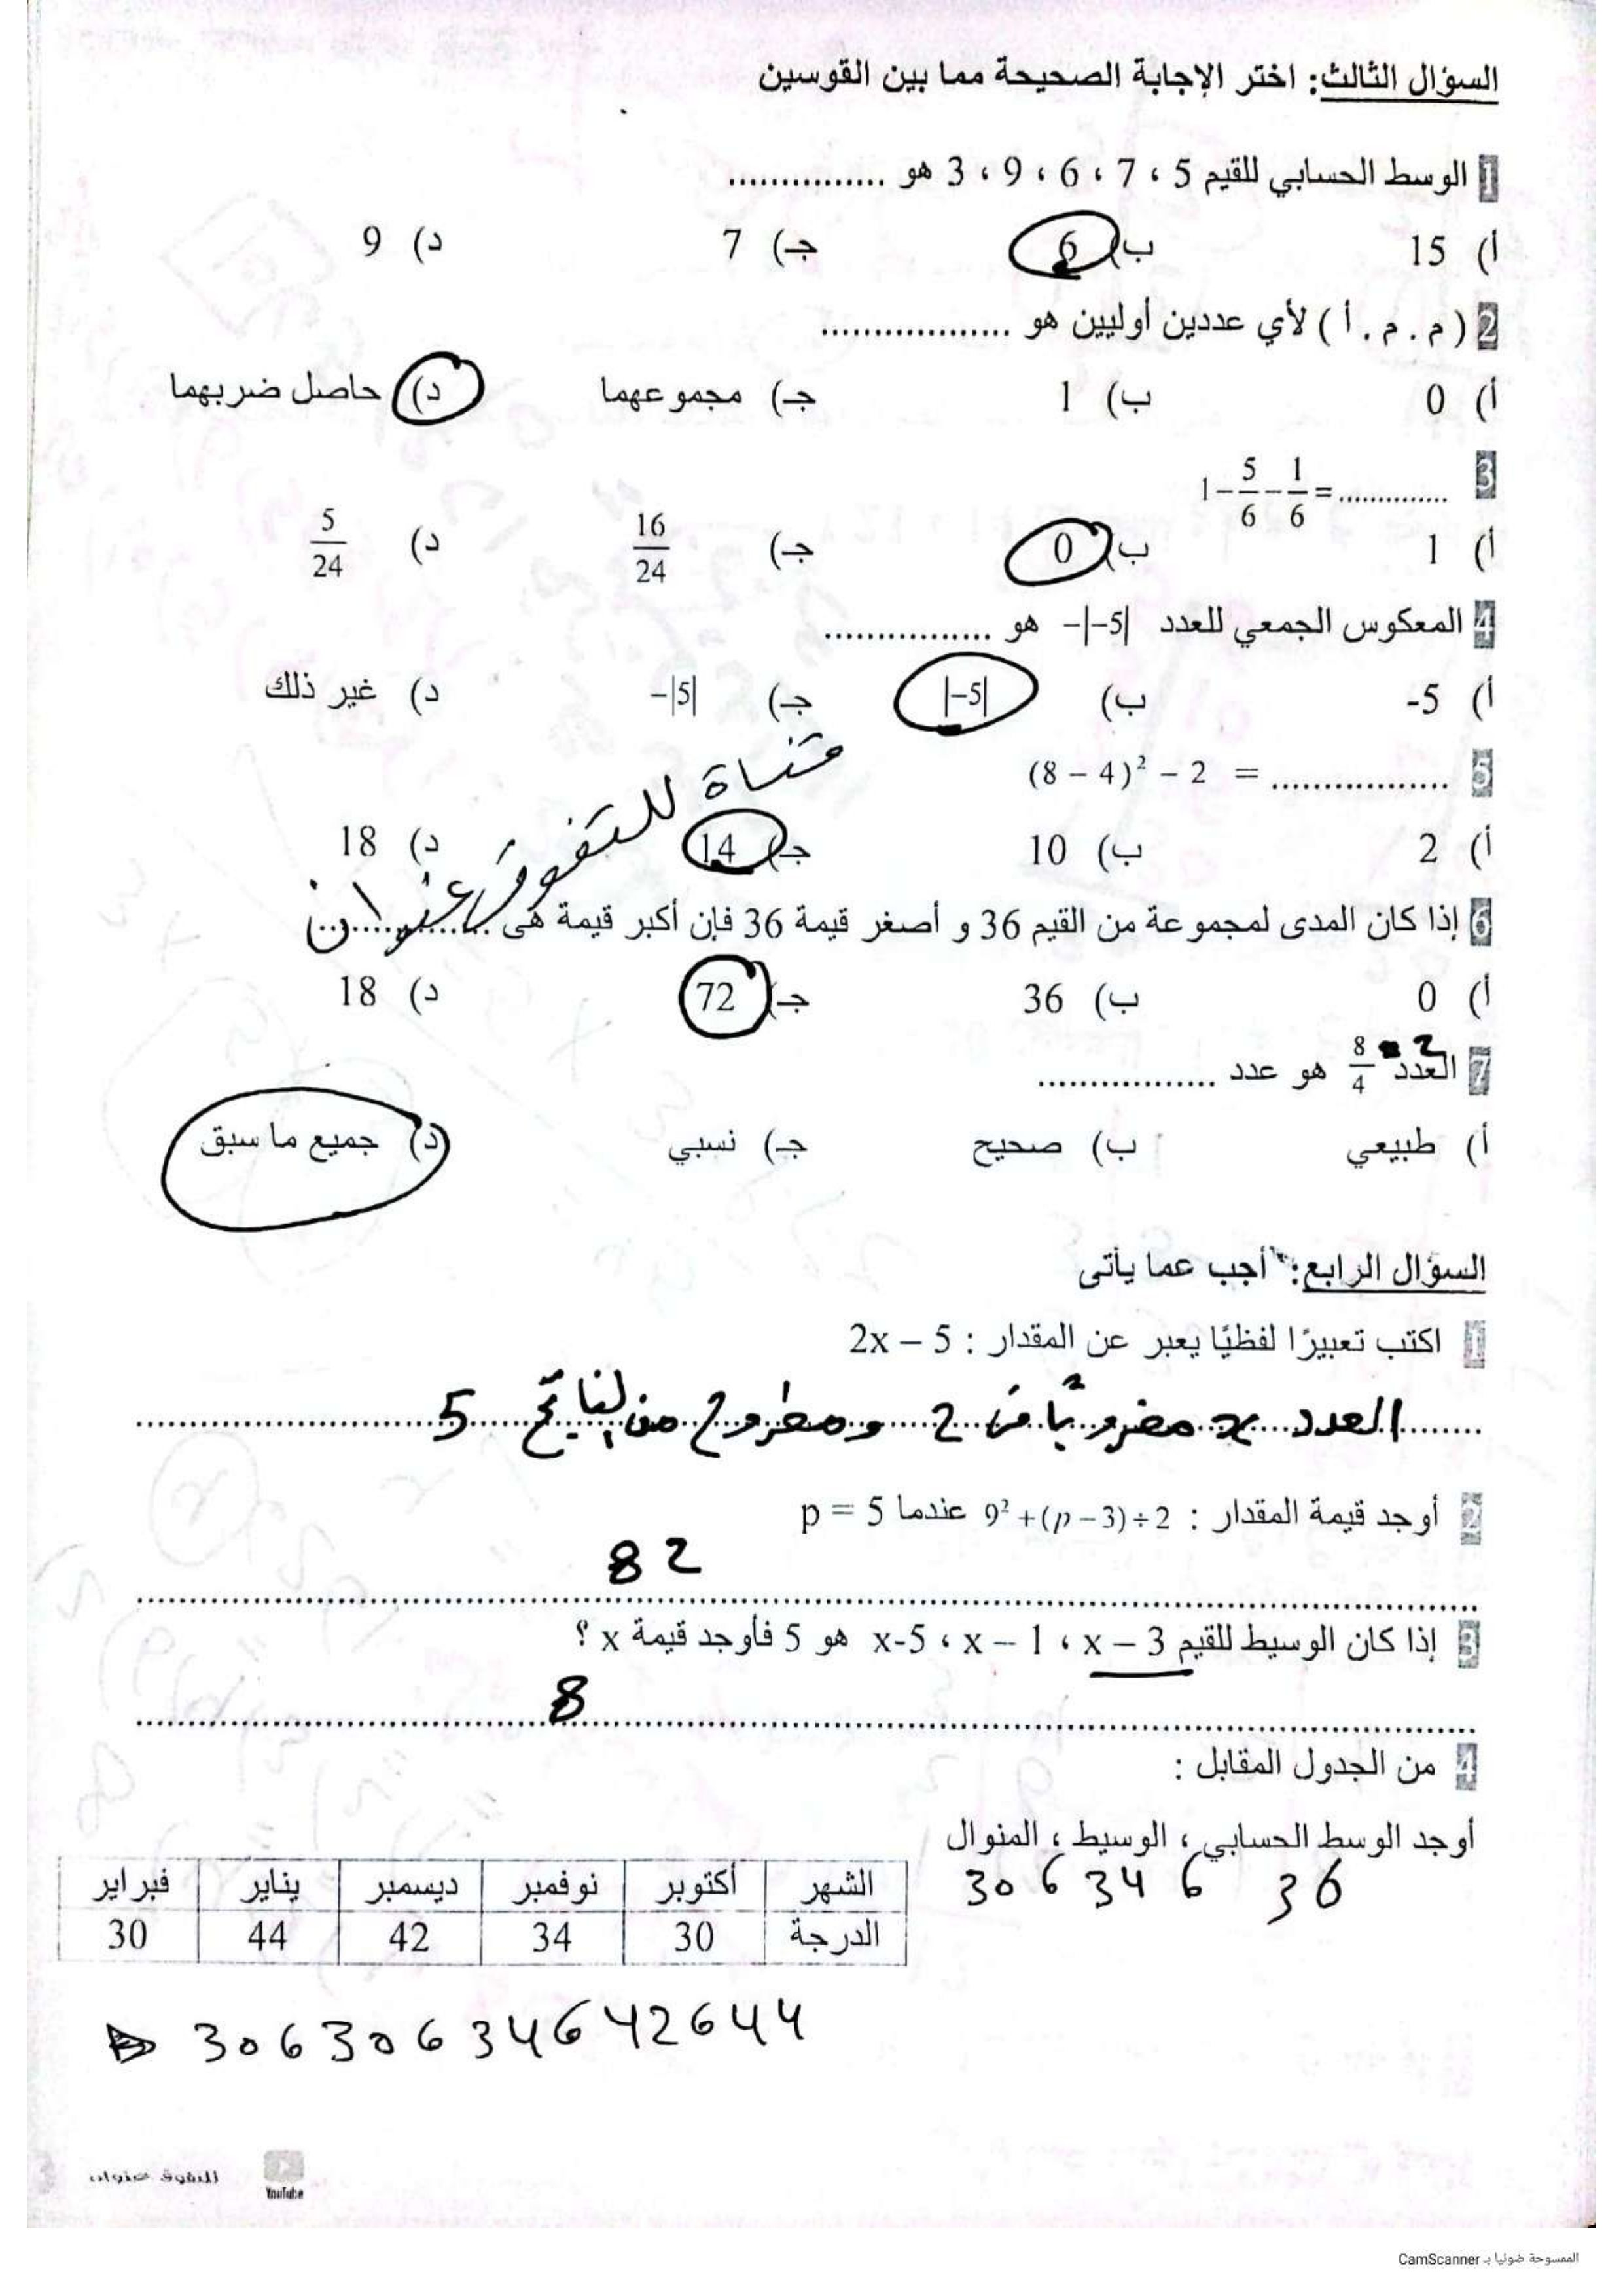 السؤال الثالث: اختر الإجابة الصحيحة مما بين القوسين
1 الوسط الحسابي للقيم 5 ، 7 ، 6 ، 9 ، 3 هو ...............
أ) 15 ب) 6 جـ) 7 د) 9
2 ( م . م . أ ) لأي عددين أوليين هو ..................
أ) 0 ب) 1 جـ) مجموعهما د) حاصل ضربهما
3 1 − 5/6 − 1/6 = ..............
أ) 1 ب) 0 جـ) 16/24 د) 5/24
4 المعكوس الجمعي للعدد −|−5| هو ................
أ) -5 ب) |−5| جـ) −|5| د) غير ذلك
5 (8 − 4)² − 2 = .................
أ) 2 ب) 10 جـ) 14 د) 18
قناة للتفوق عنوان
6 إذا كان المدى لمجموعة من القيم 36 و أصغر قيمة 36 فإن أكبر قيمة هى ..................
أ) 0 ب) 36 جـ) 72 د) 18
7 العدد 8/4 هو عدد ................. = 2
أ) طبيعي ب) صحيح جـ) نسبي د) جميع ما سبق
السؤال الرابع: أجب عما يأتى
1 اكتب تعبيرًا لفظيًا يعبر عن المقدار : 2x − 5
العدد x مضروبًا في 2 ومطروح من الناتج 5
2 أوجد قيمة المقدار : 9² + (p − 3) ÷ 2 عندما p = 5
82
3 إذا كان الوسيط للقيم x − 3 ، x − 1 ، x-5 هو 5 فأوجد قيمة x ؟
8
4 من الجدول المقابل :
أوجد الوسط الحسابي ، الوسيط ، المنوال
36 ، 34 ، 30
الشهر أكتوبر نوفمبر ديسمبر يناير فبراير
الدرجة 30 34 42 44 30
30 ، 30 ، 34 ، 42 ، 44
للتفوق عنوان
YouTube
الممسوحة ضوئيا بـ CamScanner